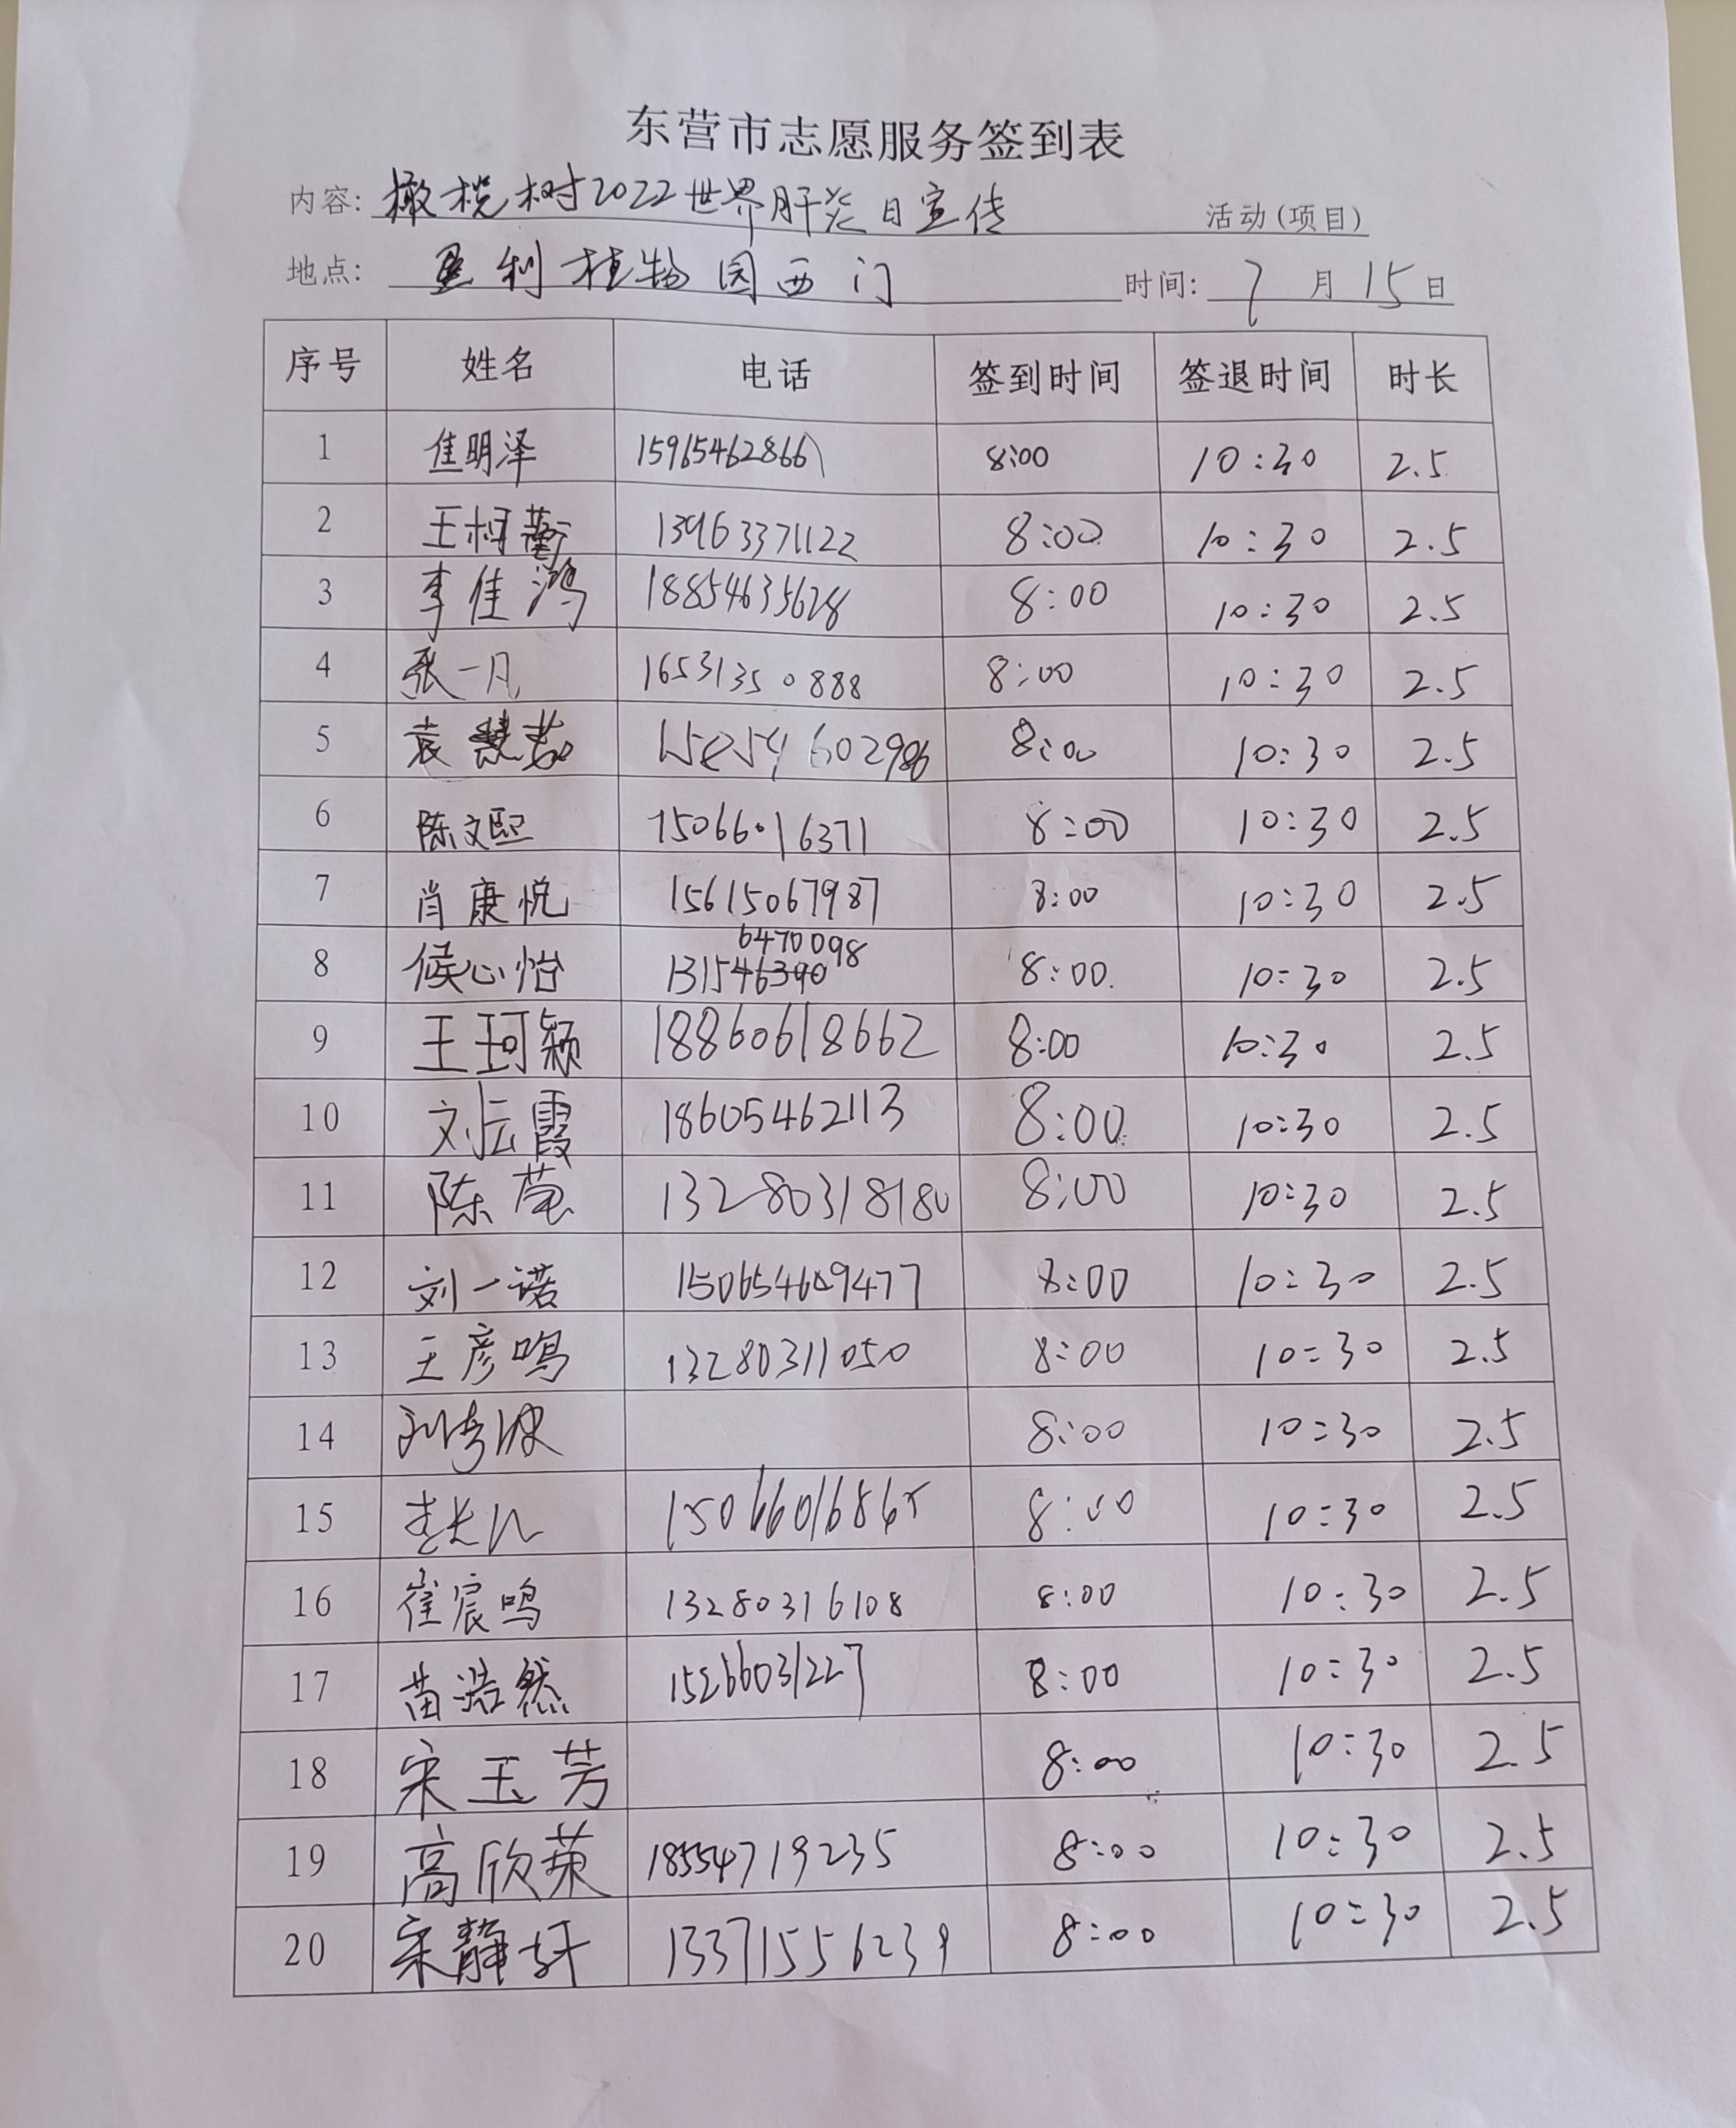 东营市志愿服务签到表
内容: 橄榄树2022世界肝炎日宣传 活动(项目)
地点: 垦利植物园西门 时间: 7月15日
序号 姓名 电话 签到时间 签退时间 时长
1 隹明泽 15965462866 8:00 10:30 2.5
2 王柯蘅 13963371122 8:00 10:30 2.5
3 李佳鸿 18854635628 8:00 10:30 2.5
4 张一凡 16531350888 8:00 10:30 2.5
5 袁 8:00 10:30 2.5
6 陈文熙 15066016371 8:00 10:30 2.5
7 肖康悦 15615067987 8:00 10:30 2.5
6470098
8 候心怡 131546390 8:00 10:30 2.5
9 王珂颖 18860618662 8:00 10:30 2.5
10 刘云霞 18605462113 8:00 10:30 2.5
11 陈莺 13280318180 8:00 10:30 2.5
12 刘一诺 8:00 10:30 2.5
13 王彦鸣 13280311050 8:00 10:30 2.5
14 8:00 10:30 2.5
15 15066016865 8:00 10:30 2.5
16 崔宸鸣 13280316108 8:00 10:30 2.5
17 苗浩然 15266031227 8:00 10:30 2.5
18 宋玉芳 8:00 10:30 2.5
19 高欣荣 18554719235 8:00 10:30 2.5
20 宋静圩 13371556239 8:00 10:30 2.5